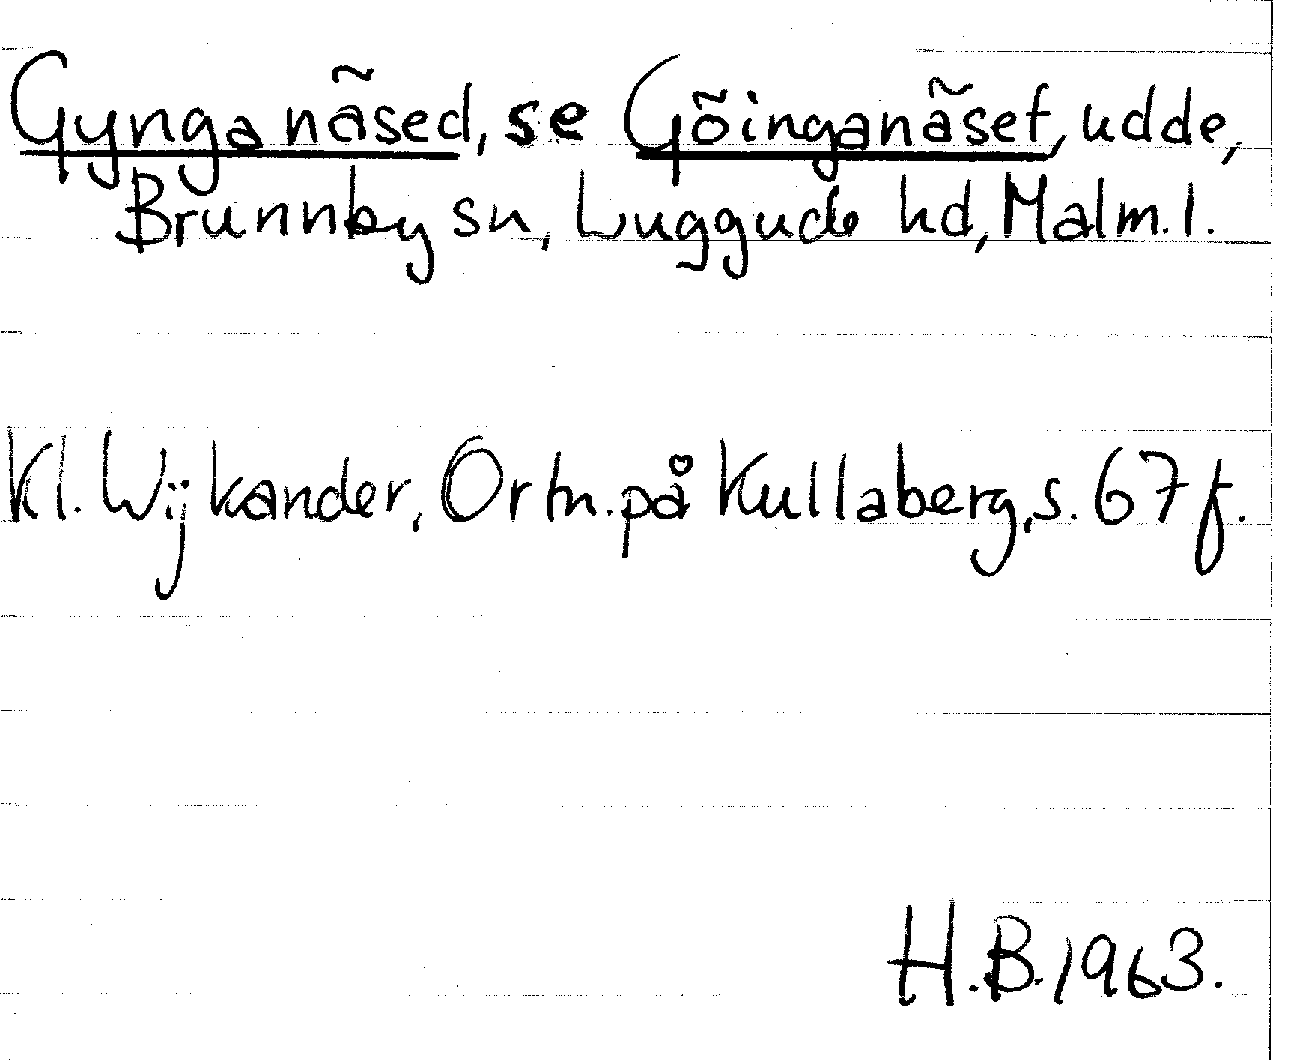 Gynganäsed, se Göinganäset, udde,
Brunnby sn, Luggude hd, Malm. l.
Kl. Wijkander, Ortn. på Kullaberg, s. 67 f.
H.B. 1963.